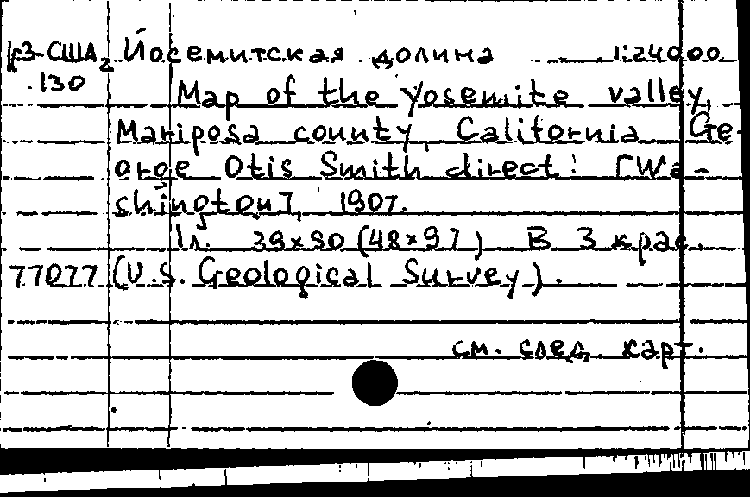 к3-США2 Йосемитская долина 1:24000
.130 Map of the Yosemite valley,
Mariposa county, California. Ge-
orge Otis Smith direct: [Wa-
shington], 1907.
1л. 39×90 (48×97) В 3 крас.
77077 (U.S. Geological Survey).
см. след. карт.